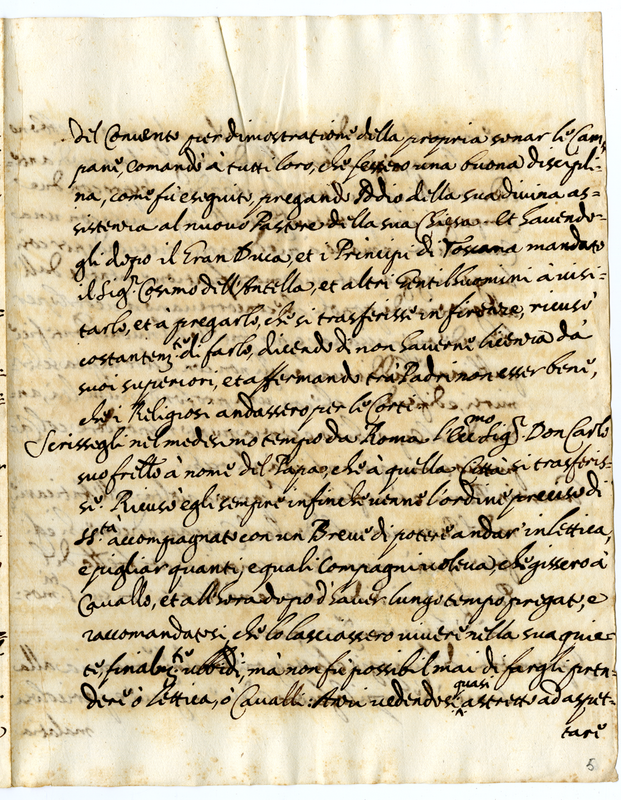 del Convento per dimostratione della propria sonar le Cam,
pane, comandò à tutti loro, che fessero una buona discipli-
na, come fù eseguito, pregando Iddio della sua divina as-
sistenza al nuovo Pastore della sua Chiesa. Et havendo-
gli dopo il Gran Duca, et i Principi di Toscana mandato
il Sigr. Cosimo dell'Antella, et altri Gentilhuomini à visi-
tarlo, et à pregarlo, che si trasferisse in firenze, ricusò
costantemte. di farlo, dicendo di non haverne licenza dà
suoi superiori, et affermando trà Padri non esser bene,
che i Religiosi andassero per le Corti.
Scrissegli nel medesimo tempo da Roma l'Eccmo Sigr. Don Carlo
suo frello à nome del Papa, che à quella Città si trasferis-
se. Ricusò egli sempre infinche venne l'ordine preciso di
SS.ta accompagnato con un Breve di potere andar in lettica,
e pigliar quanti, e quali Compagni voleva che gissero à
Cavallo, et all'hora dopo d'haver lungo tempo pregato, e
raccomandatosi, che lo lasciassero vivere nella sua quie-
te, finalmte. ubbidì, mà non fu possibil mai di fargli pren-
dere ò lettica, ò Cavalli: Anzi vedendosi quasi astretto ad aspet-
tare
5